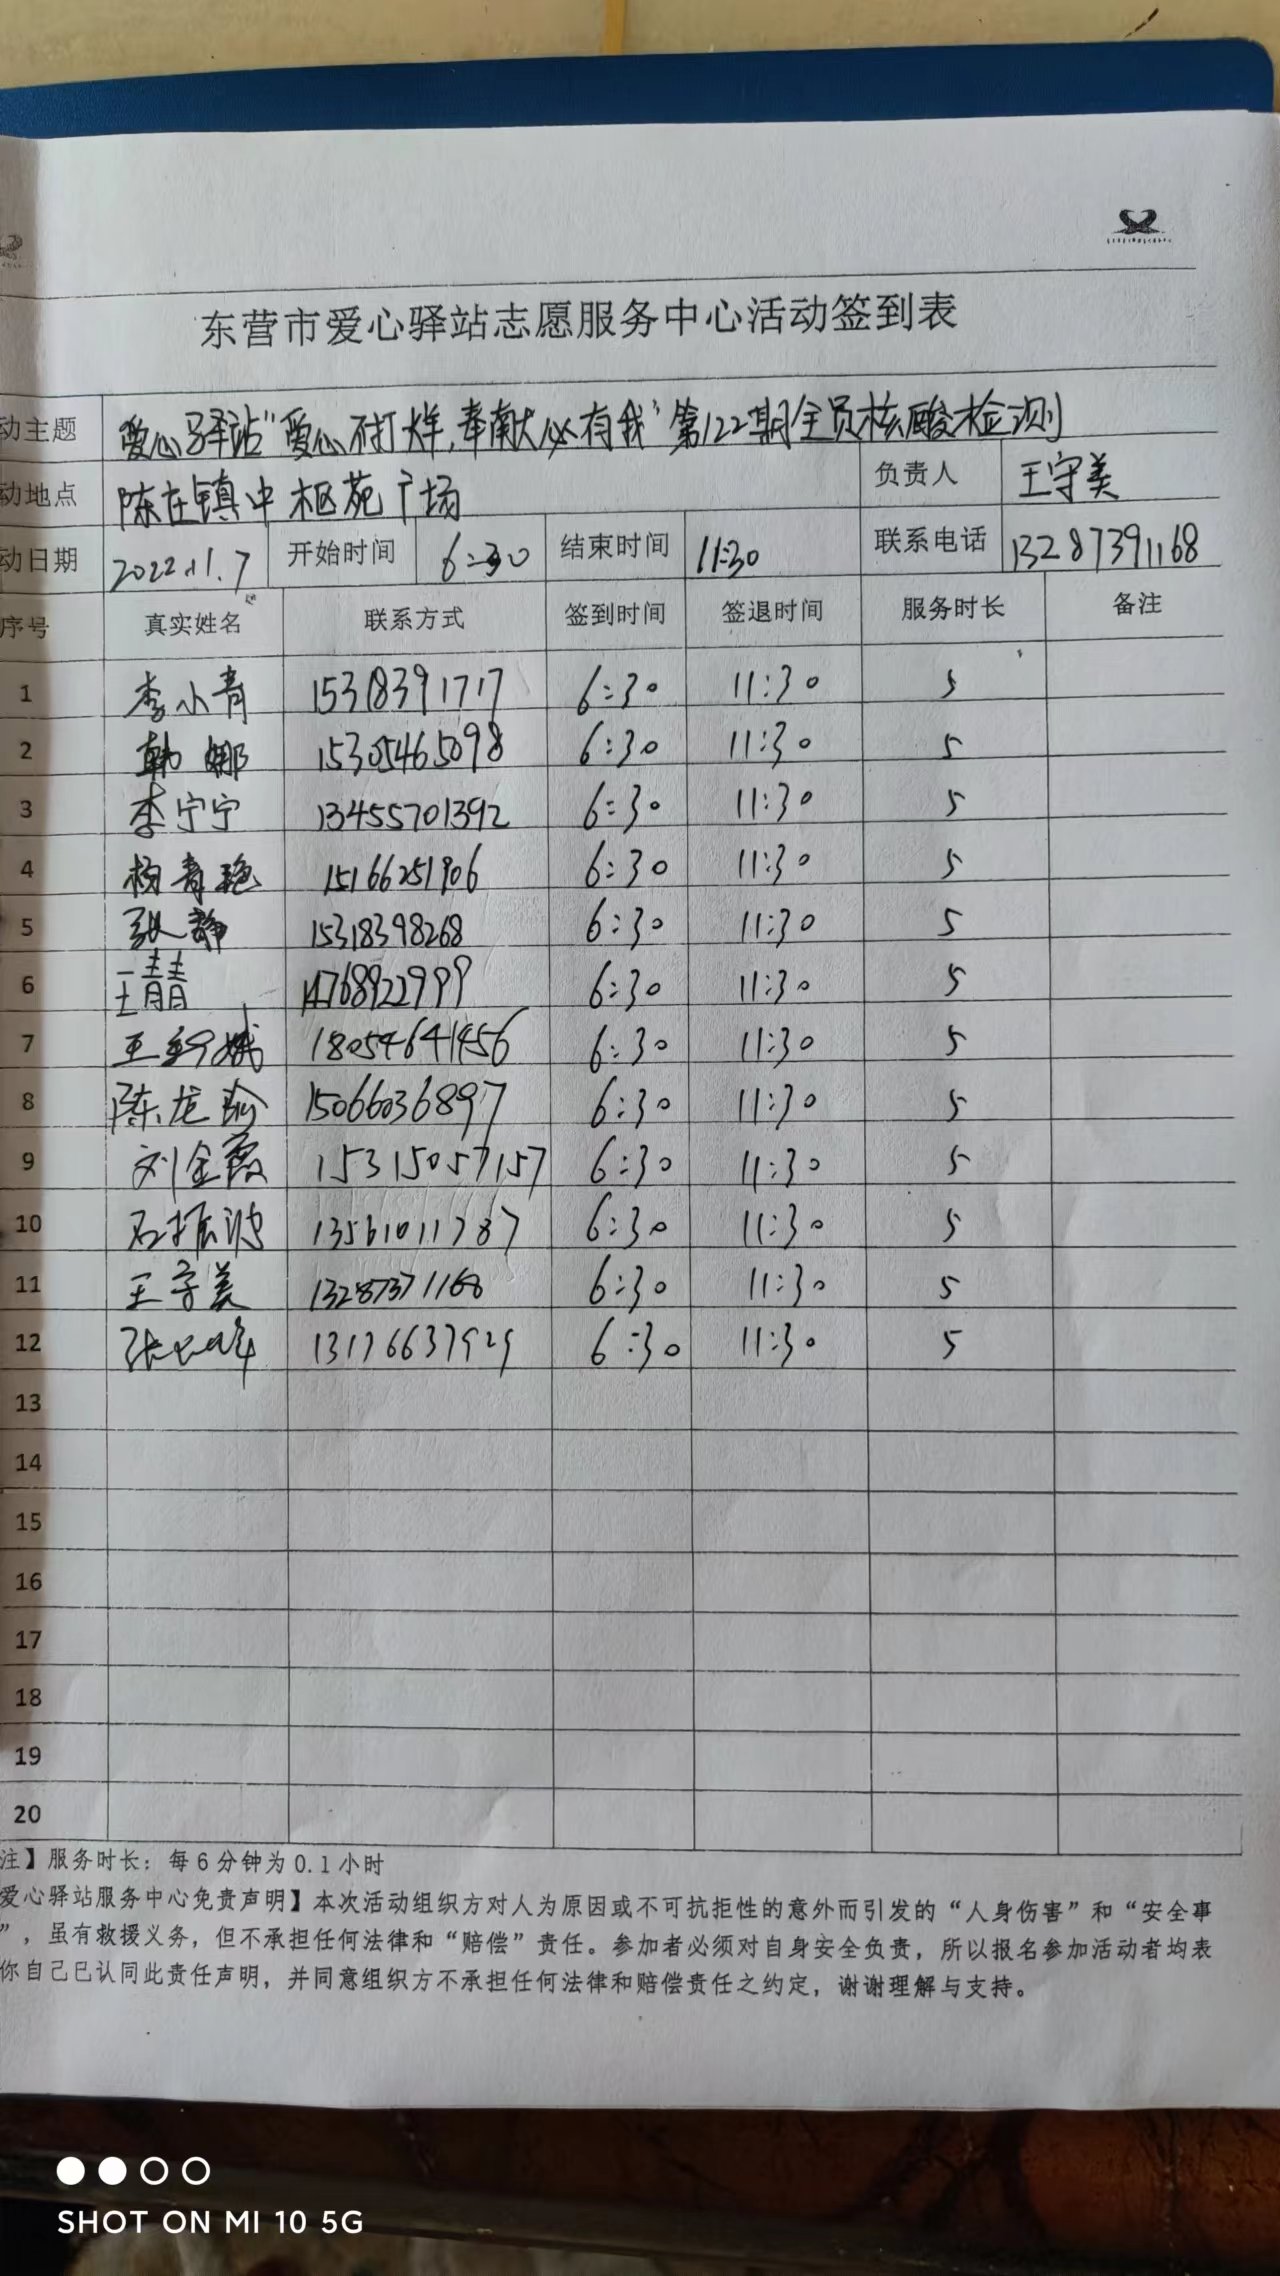 东营市爱心驿站志愿服务中心活动签到表
动主题 爱心驿站“爱心不打烊,奉献必有我”第122期全员核酸检测
动地点 陈庄镇中枢苑广场 负责人 王守美
动日期 2022.11.7 开始时间 6:30 结束时间 11:30 联系电话 13287391168
序号 真实姓名 联系方式 签到时间 签退时间 服务时长 备注
1 李小青 15318391717 6:30 11:30 5
2 韩娜 15305465098 6:30 11:30 5
3 李宁宁 13455701392 6:30 11:30 5
4 杨青艳 15166251906 6:30 11:30 5
5 张静 15318398268 6:30 11:30 5
6 王青青 14768922999 6:30 11:30 5
7 王 18054641456 6:30 11:30 5
8 陈龙 15066036897 6:30 11:30 5
9 刘金霞 15315057157 6:30 11:30 5
10 石振波 13561011787 6:30 11:30 5
11 王守美 13287371168 6:30 11:30 5
12 张 13176637929 6:30 11:30 5
13
14
15
16
17
18
19
20
注】服务时长：每6分钟为0.1小时
爱心驿站服务中心免责声明】本次活动组织方对人为原因或不可抗拒性的意外而引发的“人身伤害”和“安全事
”，虽有救援义务，但不承担任何法律和“赔偿”责任。参加者必须对自身安全负责，所以报名参加活动者均表
你自己已认同此责任声明，并同意组织方不承担任何法律和赔偿责任之约定，谢谢理解与支持。
SHOT ON MI 10 5G